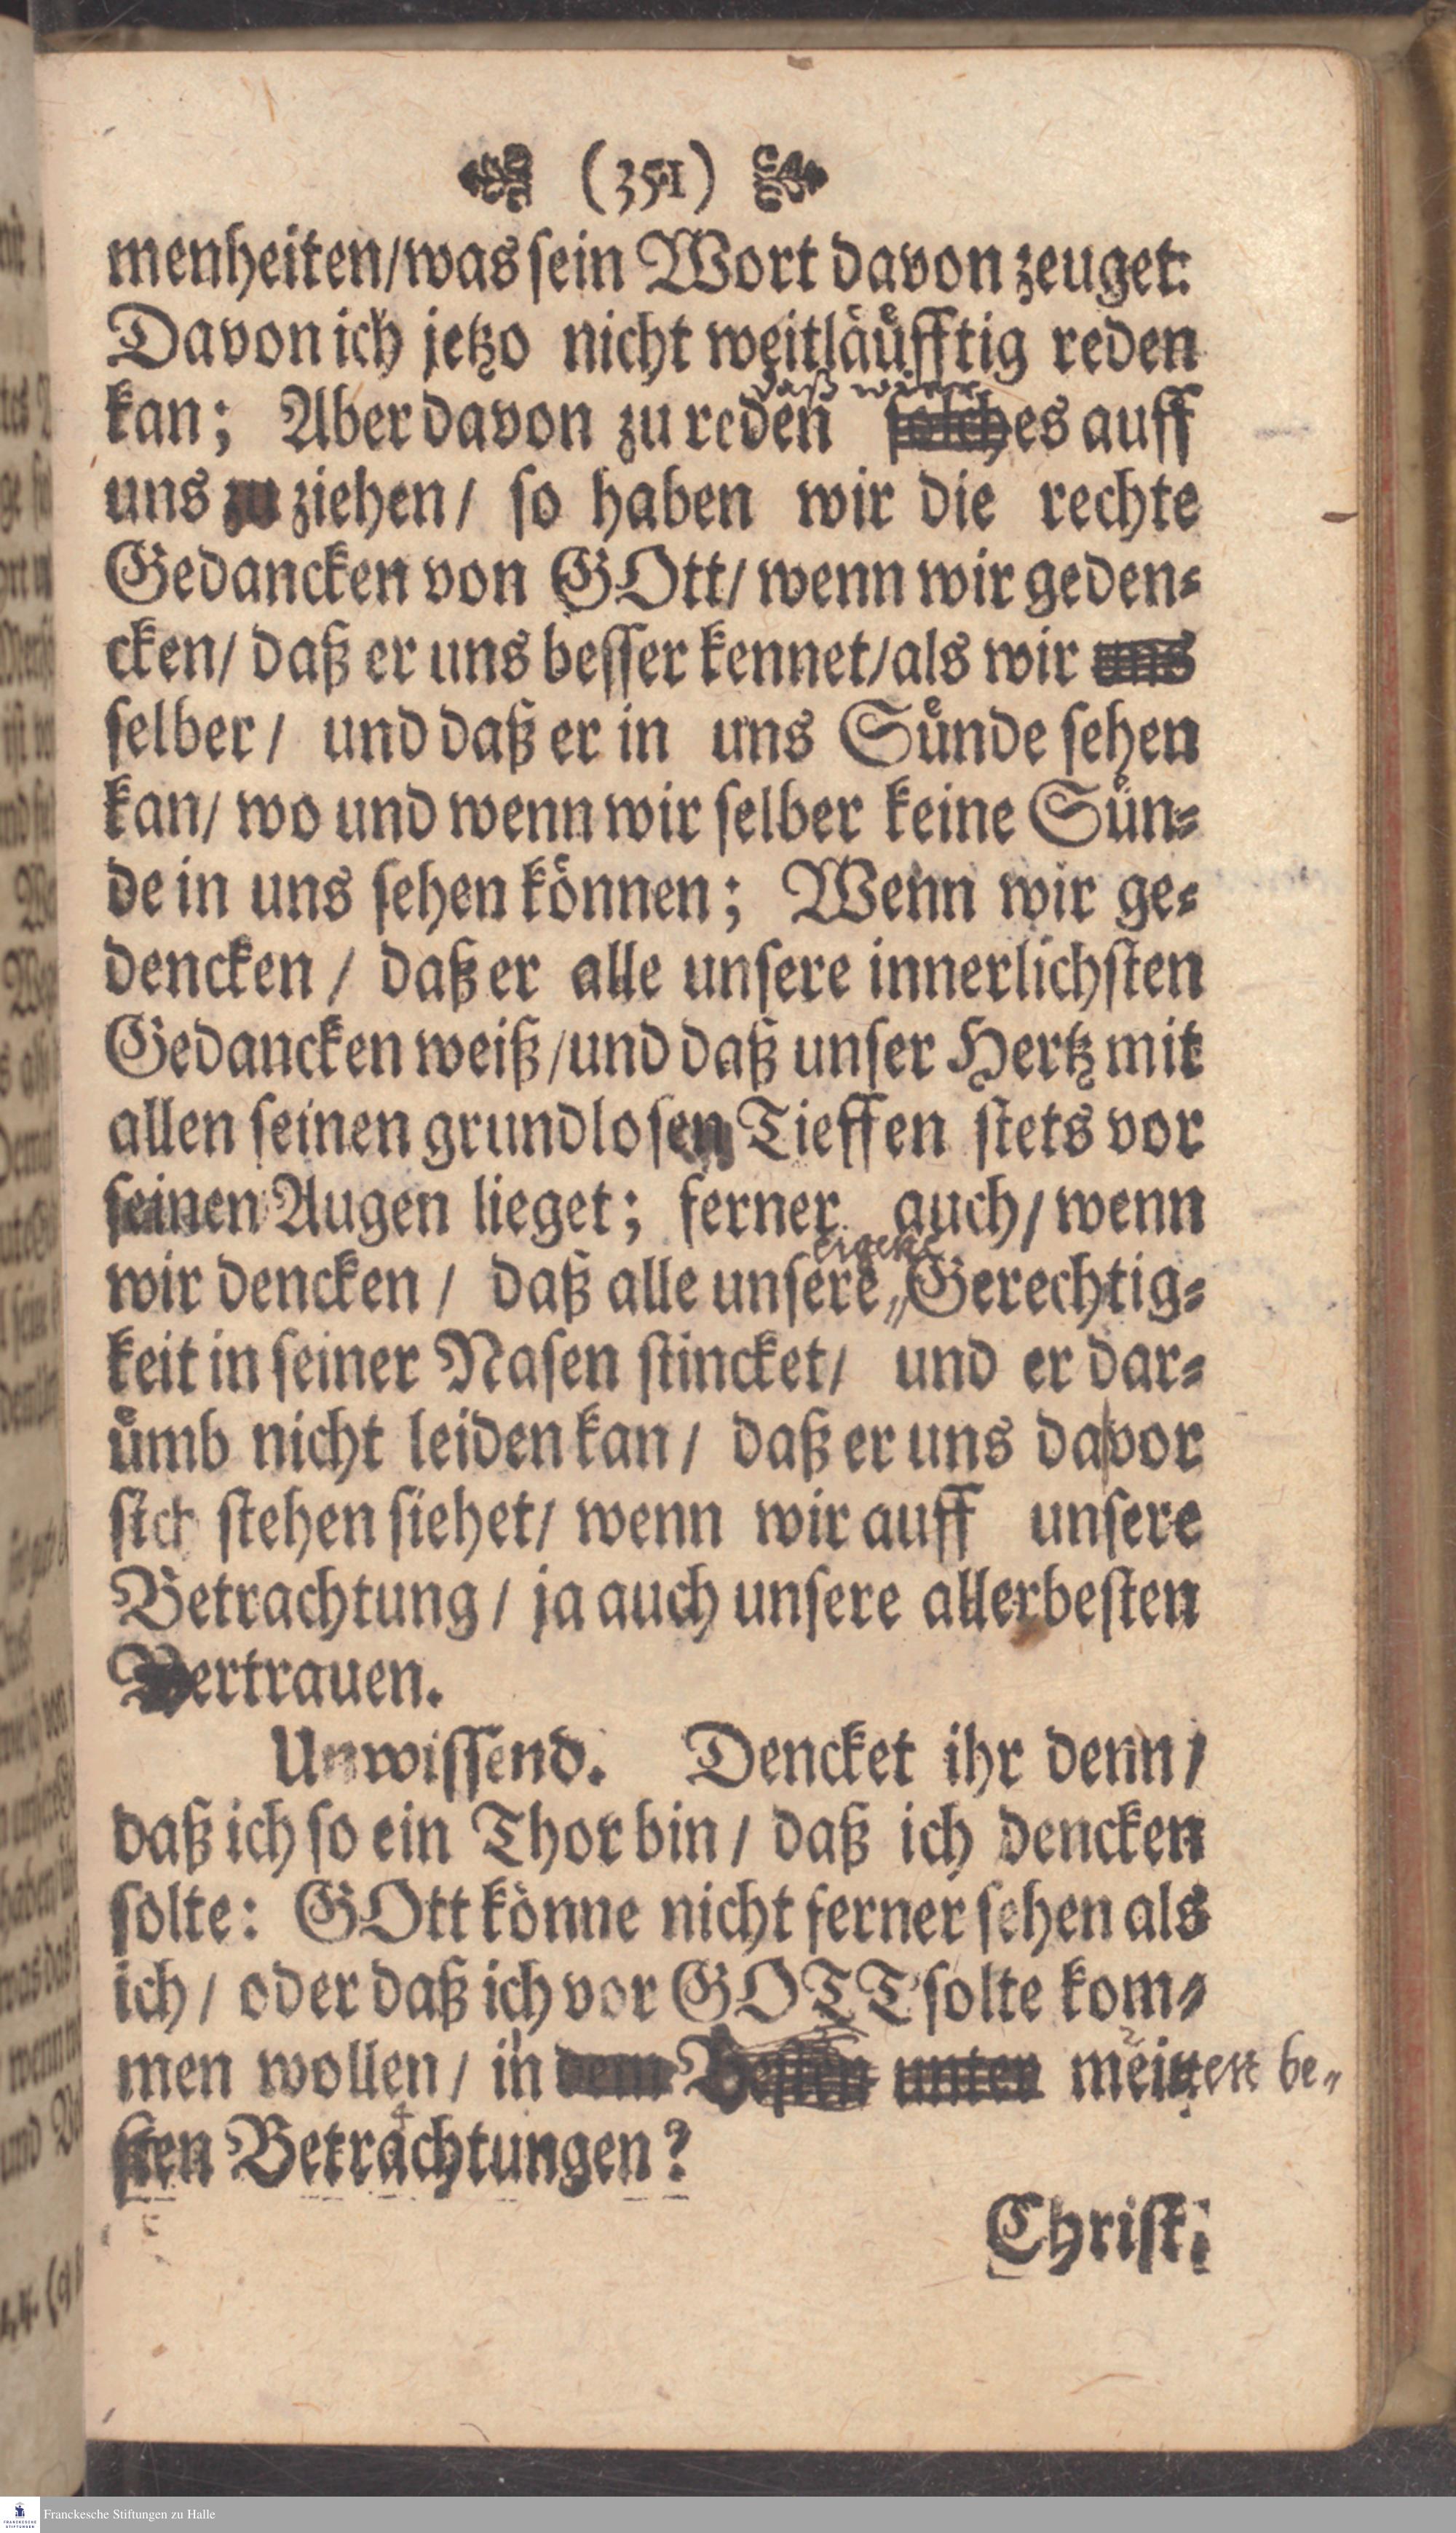 (351)
menheiten/was ſein Wort davon zeuget:
Davon ich jetzo nicht weitlaͤuͤfftig reden
daß wir
kan; Aber davon zu reden ſolches auff
uns zu ziehen/ ſo haben wir die rechte
Gedancken von GOtt/ wenn wir geden⸗
cken/ daß er uns beſſer kennet/als wir uns
ſelber/ und daß er in uns Suͤnde ſehen
kan/ wo und wenn wir ſelber keine Suͤn⸗
de in uns ſehen koͤnnen; Wenn wir ge⸗
dencken/ daß er alle unſere innerlichſten
Gedancken weiß/und daß unſer Hertz mit
allen ſeinen grundloſen Tieffen ſtets vor
ſeinen Augen lieget; ferner auch/ wenn
eigene
wir dencken/ daß alle unſere „Gerechtig⸗
keit in ſeiner Naſen ſtincket/ und er dar⸗
uͤmb nicht leiden kan/ daß er uns da vor
ſich ſtehen ſiehet/ wenn wir auff unſere
Betrachtung/ ja auch unſere allerbeſten
Vertrauen.
Unwiſſend. Dencket ihr denn/
daß ich ſo ein Thor bin/ daß ich dencken
ſolte: GOtt koͤnne nicht ferner ſehen als
ich/ oder daß ich vor GOTT ſolte kom⸗
men wollen/ in dem Beſten unter meinen be„
ſten Betrachtungen?
Chriſt.
Franckesche Stiftungen zu Halle